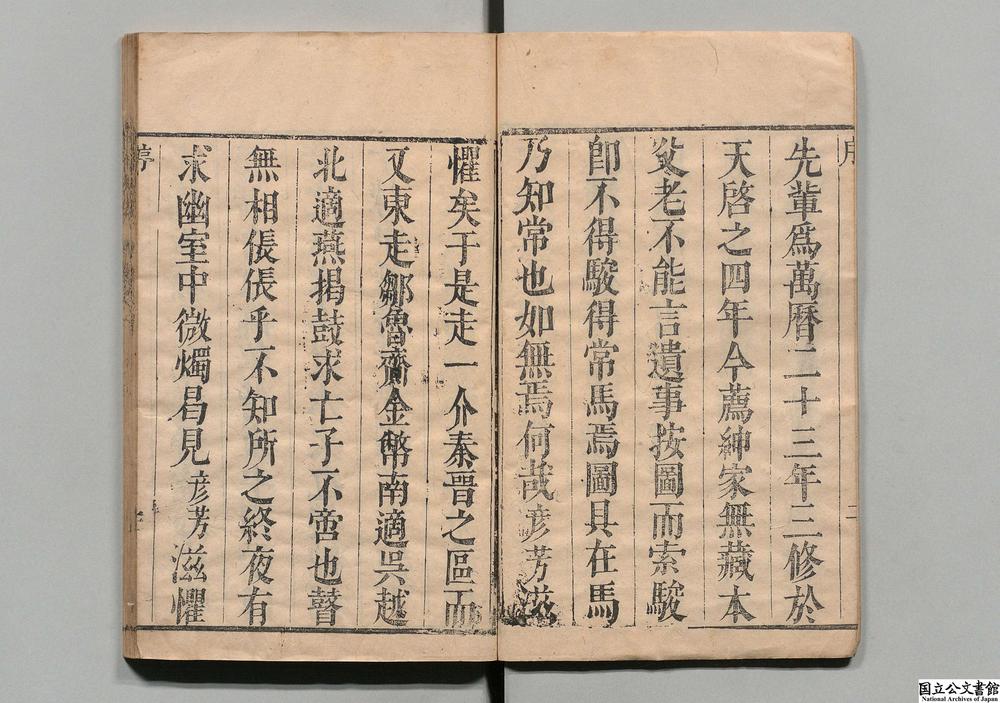 序
二
先輩爲萬曆二十三年三修於
天啓之四年今薦紳家無藏本
父老不能言遺事按圖而索駿
卽不得駿得常馬焉圖具在馬
乃知常也如無焉何哉彥芳滋
懼矣于是走一介秦晉之區而
又東走鄒魯齎金幣南適吳越
北適燕揭鼓求亡子不啻也瞽
無相倀倀乎不知所之終夜有
求幽室中微燭曷見彥芳滋懼
国立公文書館
National Archives of Japan